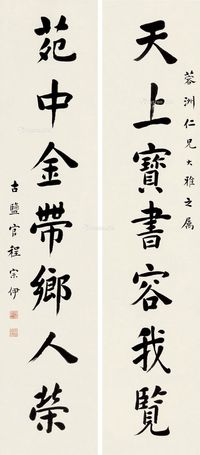 蓉洲仁兄大雅之属
天上寶書容我覽
苑中金帶鄉人榮
古鹽官程宗伊